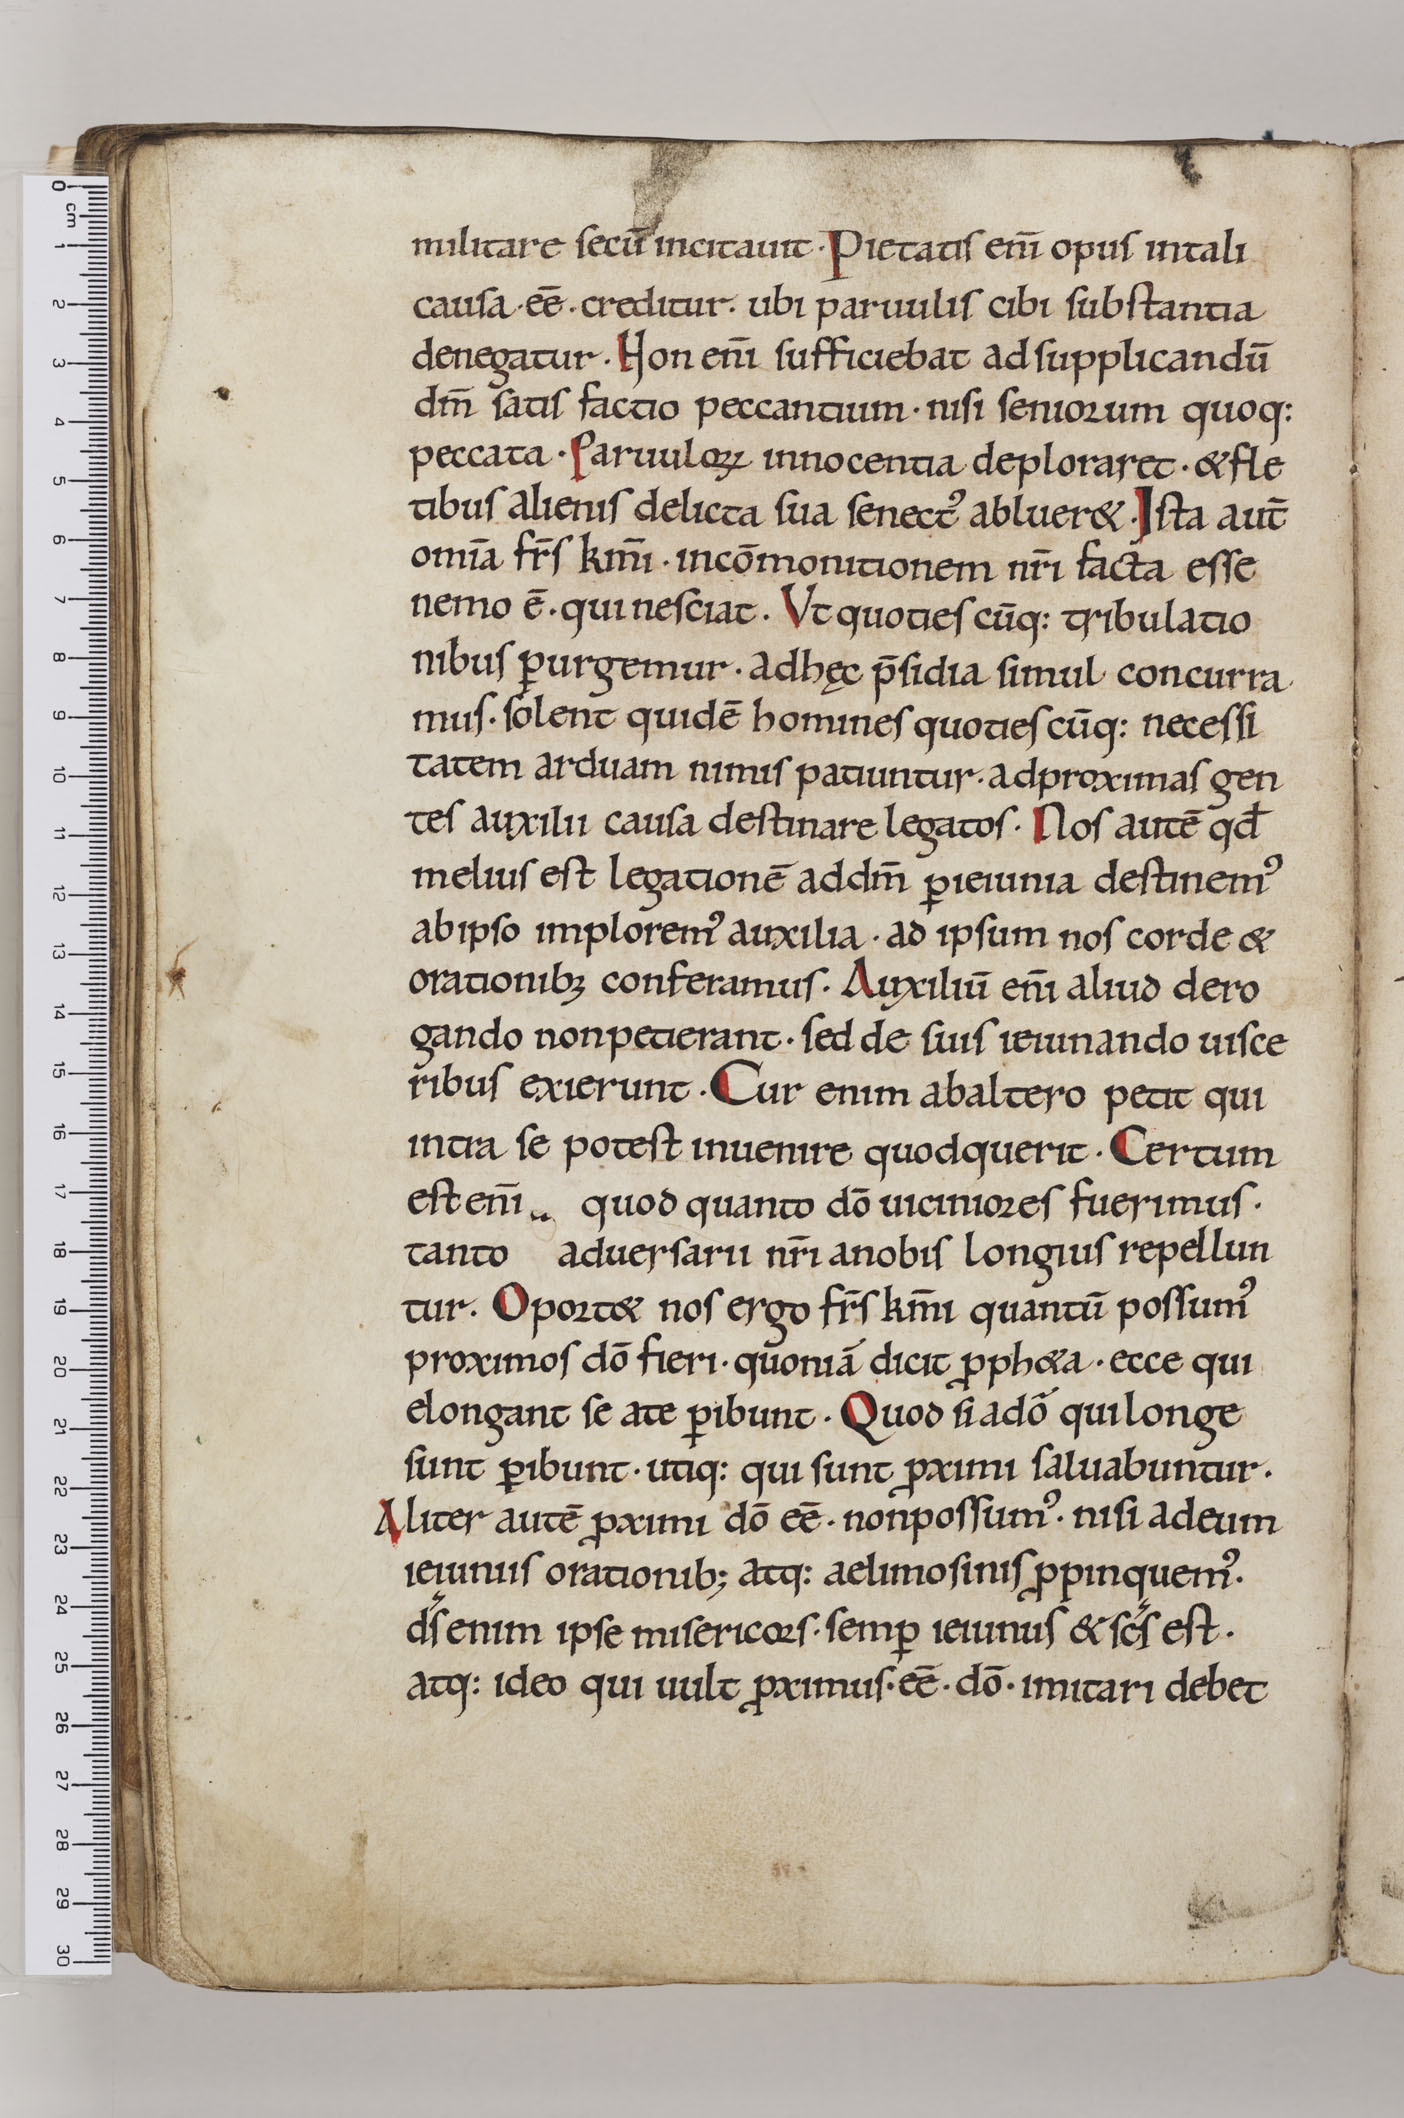 militare secū incitauit · Pietatis em̄ opus intali
causa · eē · creditur · ubi paruulis cibi substantia
denegatur · Non em̄ sufficiebat adsupplicandū
dm̄ satis factio peccantium · nisi seniorum quoq:
peccata · Paruuloꝝ innocentia deploraret · & fle
tibus alienis delicta sua senectꝰ abluer& · Ista aut̄
om̄ia fr̄s km̄i · incōmonitionem nr̄i facta esse
nemo ē · qui nesciat · Vt quotiescūq: tribulatio
nibus ꝑurgemur · adhęc p̄sidia simul concurra
mus · solent quidē homines quotiescūq: necessi
tatem arduam nimis patiuntur · adproximas gen
tes auxilii causa destinare legatos · Nos autē qd̄
melius est legationē addm̄ ꝑieiunia destinemꝰ
abipso imploremꝰ auxilia · ad ipsum nos corde &
orationibꝫ conferamus · Auxiliū em̄ aliud dero
gando nonpetierant · sed de suis ieiunando uisce
ribus exierunt · Cur enim abaltero petit qui
intra se potest inuenire quodquerit · Certum
est em̄ quod quanto dō uiciniores fuerimus ·
tanto aduersarii nr̄i anobis longius repellun
tur · Oport& nos ergo fr̄s km̄i quantū possumꝰ
proximos dō fieri · quoniā dicit ꝓph&a · ecce qui
elongant se ate ꝑibunt · Quod si adō qui longe
sunt ꝑibunt · utiq: qui sunt ꝓximi saluabuntur ·
Aliter autē ꝓximi dō eē · nonpossumꝰ · nisi adeum
ieiuniis orationib; atq: aelimosinis ꝓpinquemꝰ ·
ds̄ enim ipse misericors · semꝑ ieiunus & sc̄s est ·
atq: ideo qui uult ꝓximus · eē · dō · imitari debet
0 cm
1
2
3
4
5
6
7
8
9
10
11
12
13
14
15
16
17
18
19
20
21
22
23
24
25
26
27
28
29
30